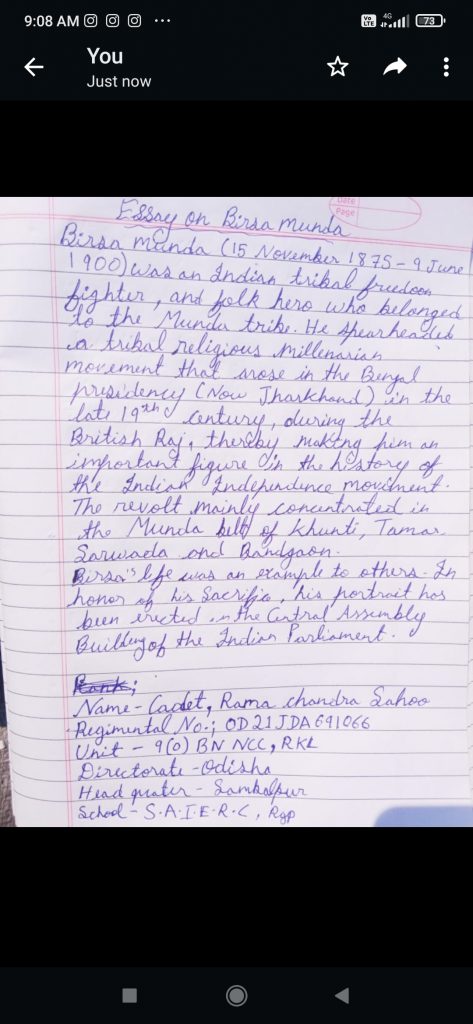 9:08 AM
Vo LTE 4G 73
You
Just now
Date
Page
Essay on Birsa Munda
Birsa munda (15 November 1875 - 9 June
1900) was an Indian tribal freedom
fighter, and folk hero who belonged
to the Munda tribe. He spearheaded
a tribal religious millenarian
movement that arose in the Bengal
presidency (Now Jharkhand) in the
late 19th century, during the
British Raj, thereby making him an
important figure in the history of
the Indian Independence movement.
The revolt mainly concentrated in
the Munda belt of Khunti, Tamar,
Sarwada and Bandgaon.
Birsa's life was an example to others. In
honor of his Sacrifice, his portrait has
been erected in the Central Assembly
Building of the Indian Parliament.
Rank;
Name - Cadet, Rama chandra Sahoo
Regimental No.; OD21JDA691066
Unit - 9(O) BN NCC, RKL
Directorate - Odisha
Head quater - Sambalpur
School - S.A.I.E.R.C, Rgp